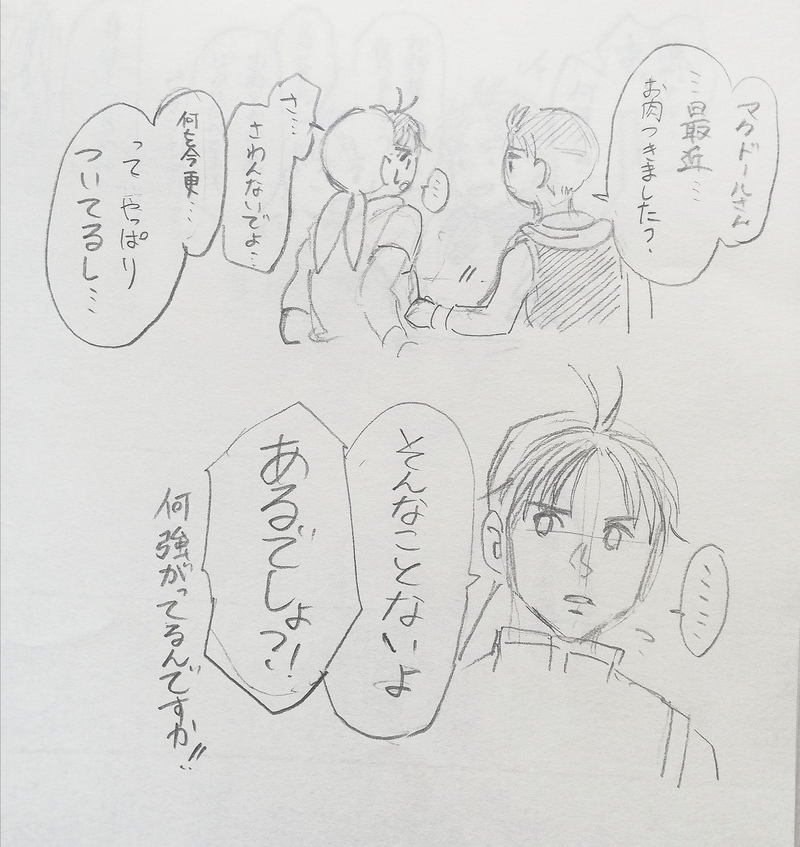 マクドールさん
…最近…
お肉つきました?
…
さ…
さわんないでよ…
何を今更…
って やっぱり
ついてるし…
……
そんなことないよ
あるでしょ?!
何強がってるんですか!!